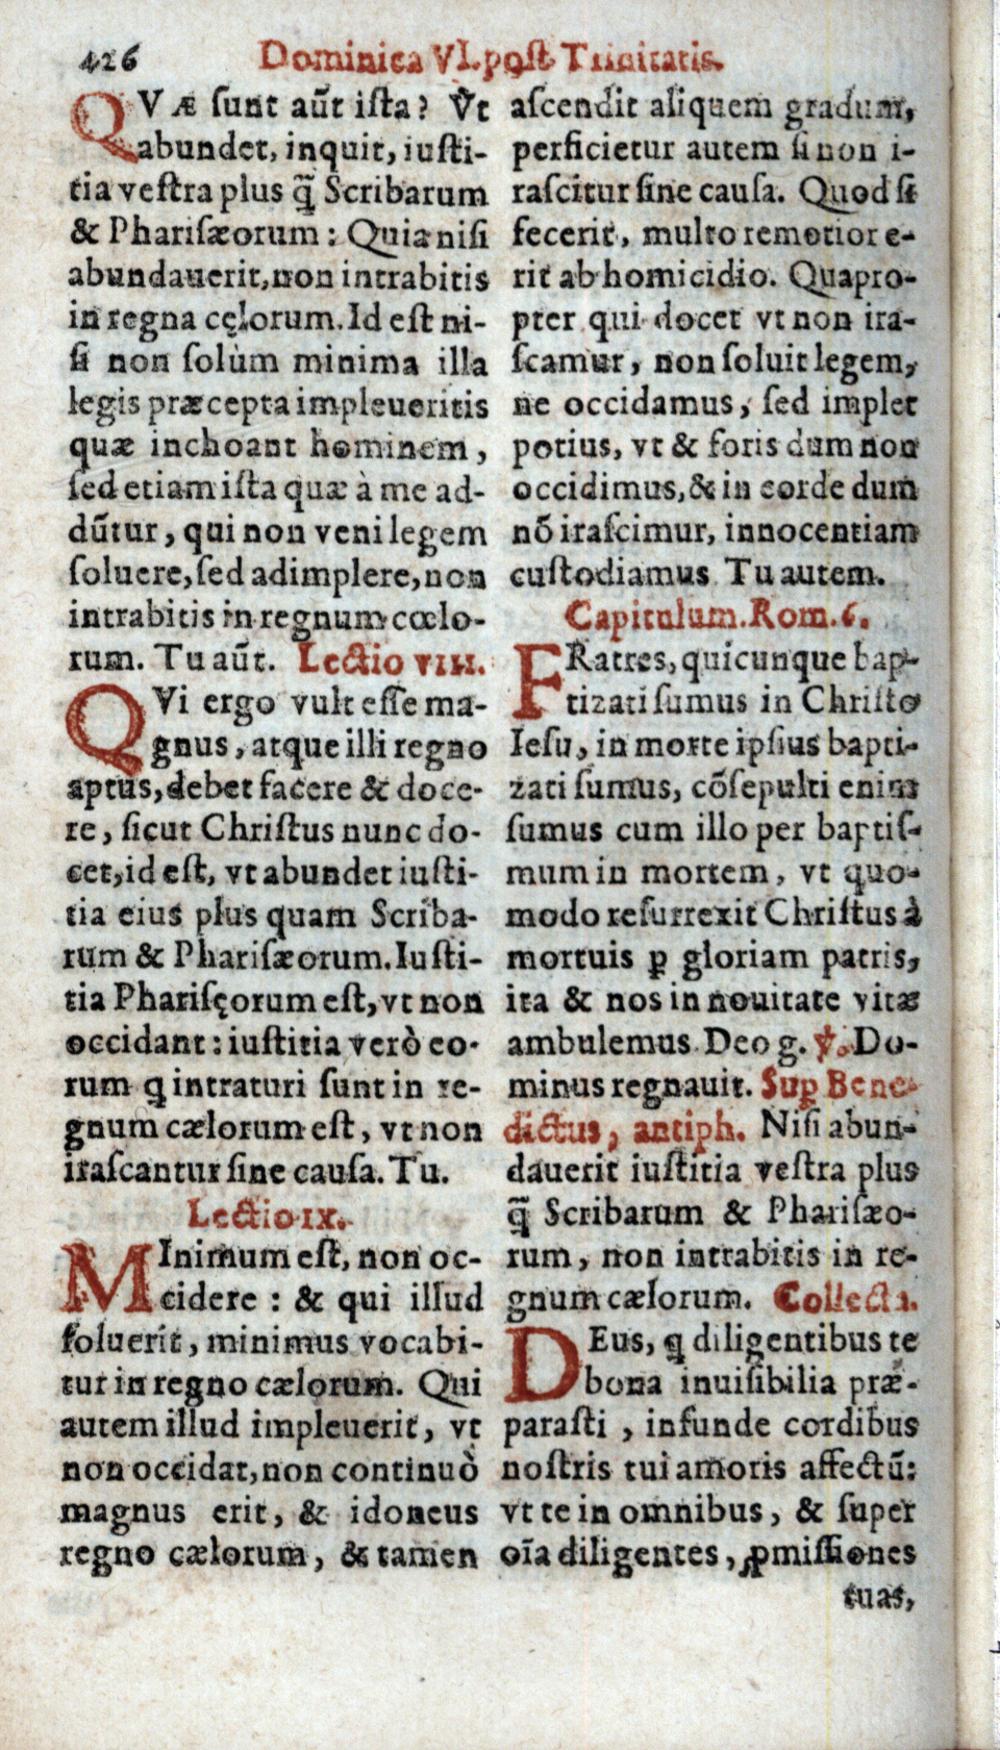 426 Dominica VI. post Trinitatis.
QVÆ ſunt aūt iſta? Vt
abundet, inquit, iuſti-
tia veſtra plus q̃ Scribarum
& Phariſæorum: Quia niſi
abundauerit, non intrabitis
in regna cęlorum. Id eſt ni-
ſi non ſolùm minima illa
legis præcepta impleueritis
quæ inchoant hominem,
ſed etiam iſta quæ à me ad-
dūtur, qui non veni legem
ſoluere, ſed adimplere, non
intrabitis in regnum cœlo-
rum. Tu aūt. Lectio VIII.
QVi ergo vult eſſe ma-
gnus, atque illi regno
aptus, debet facere & doce-
re, ſicut Chriſtus nunc do-
cet, id eſt, vt abundet iuſti-
tia eius plus quam Scriba-
rum & Phariſæorum. Iuſti-
tia Phariſęorum eſt, vt non
occidant: iuſtitia verò eo-
rum ꝗ intraturi ſunt in re-
gnum cælorum eſt, vt non
iraſcantur ſine cauſa. Tu.
Lectio IX.
MInimum eſt, non oc-
cidere: & qui illud
ſoluerit, minimus vocabi-
tur in regno cælorum. Qui
autem illud impleuerit, vt
non occidat, non continuò
magnus erit, & idoneus
regno cælorum, & tamen
aſcendit aliquem gradum,
perficietur autem ſi non i-
raſcitur ſine cauſa. Quod ſi
fecerit, multo remotior e-
rit ab homicidio. Quapro-
pter qui docet vt non ira-
ſcamur, non ſoluit legem,
ne occidamus, ſed implet
potius, vt & foris dum non
occidimus, & in corde dum
nō iraſcimur, innocentiam
cuſtodiamus. Tu autem.
Capitulum. Rom. 6.
FRatres, quicunque bap-
tizati ſumus in Chriſto
Ieſu, in morte ipſius bapti-
zati ſumus, cōſepulti enim
ſumus cum illo per baptiſ-
mum in mortem, vt quo-
modo reſurrexit Chriſtus à
mortuis ꝑ gloriam patris,
ita & nos in nouitate vitæ
ambulemus. Deo g. ℣. Do-
minus regnauit. Suꝑ Bene-
dictus, antiph. Niſi abun-
dauerit iuſtitia veſtra plus
q̃ Scribarum & Phariſæo-
rum, non intrabitis in re-
gnum cælorum. Collecta.
DEus, ꝗ diligentibus te
bona inuiſibilia præ-
paraſti, infunde cordibus
noſtris tui amoris affectū:
vt te in omnibus, & ſuper
oīa diligentes, ꝓmiſſiones
tuas,